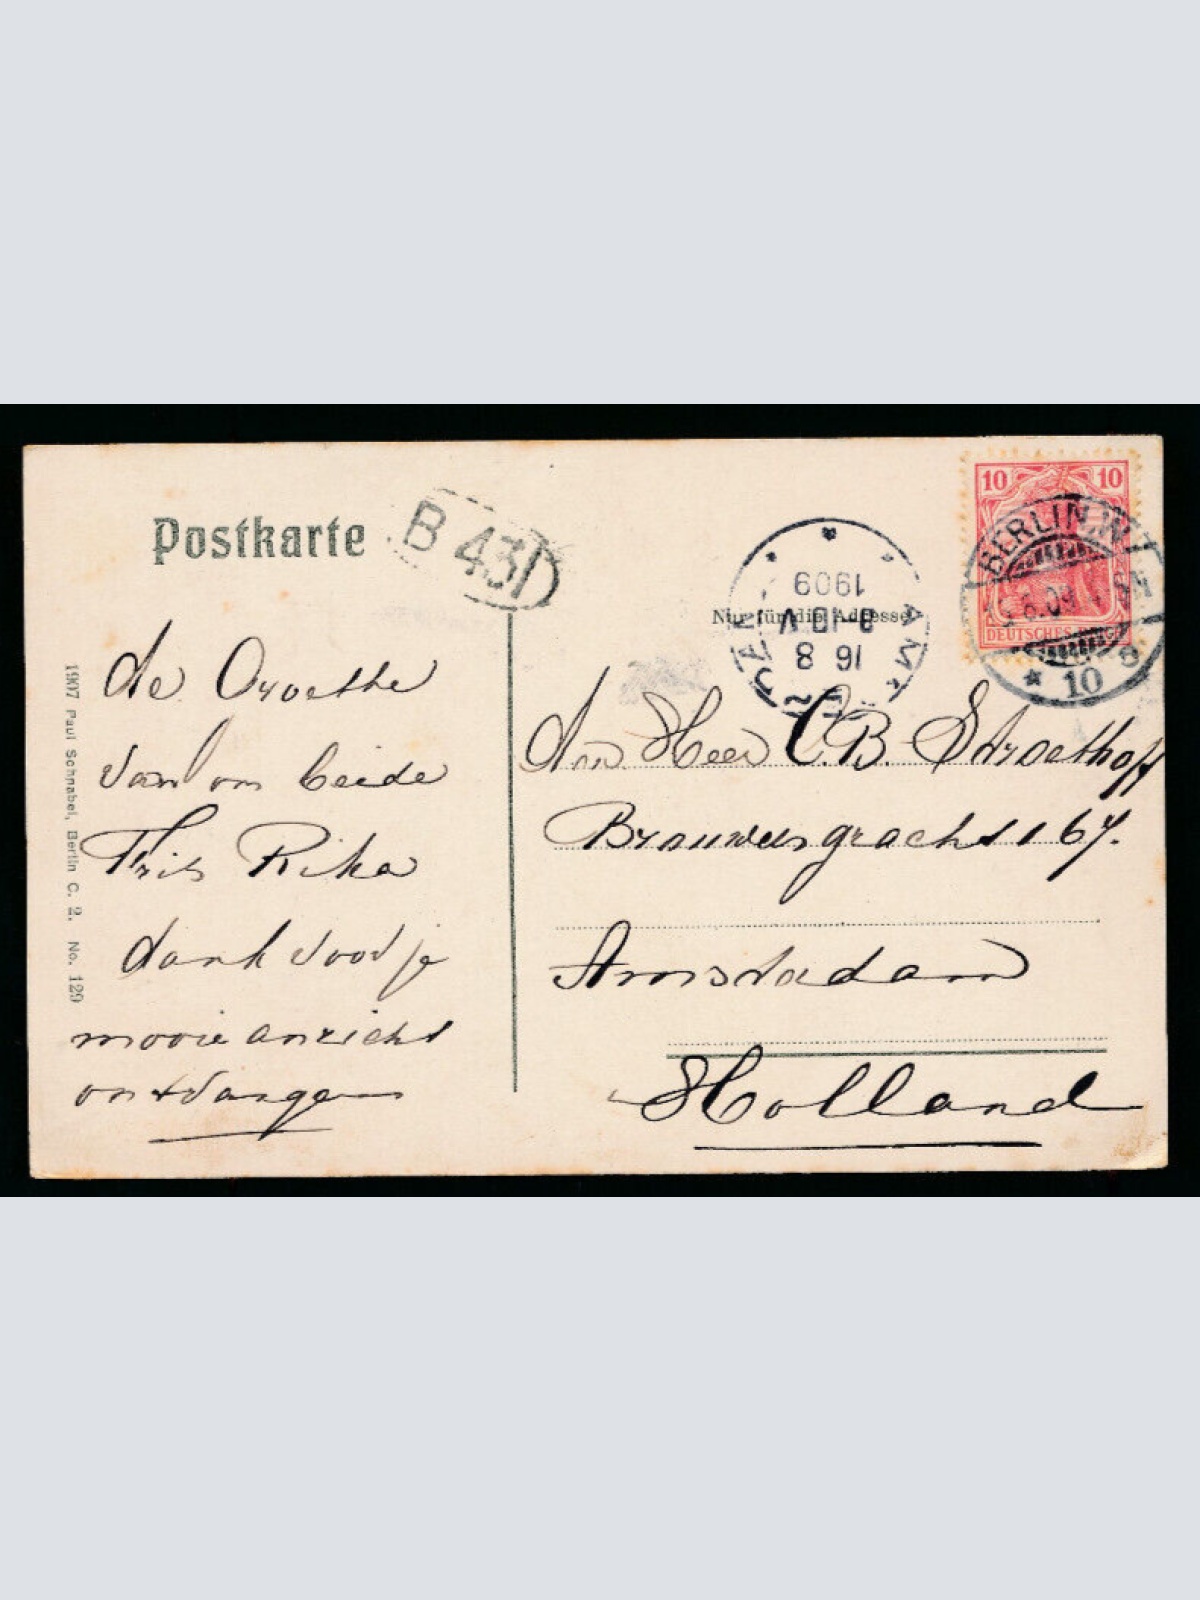 Postkarte
B 431
1909
9-10 V
16 8
Nur für die Adresse
10 10
DEUTSCHES REICH
BERLIN, W.
* 10 8
1907 Paul Schnabel, Berlin C. 2. No. 129
de Groethe
van ons beide
Frits Rika
dank voor je
mooie anzicht
ontvangen
Den Heer C.B. Stroethoff
Brouwersgracht 167.
Amsterdam
Holland